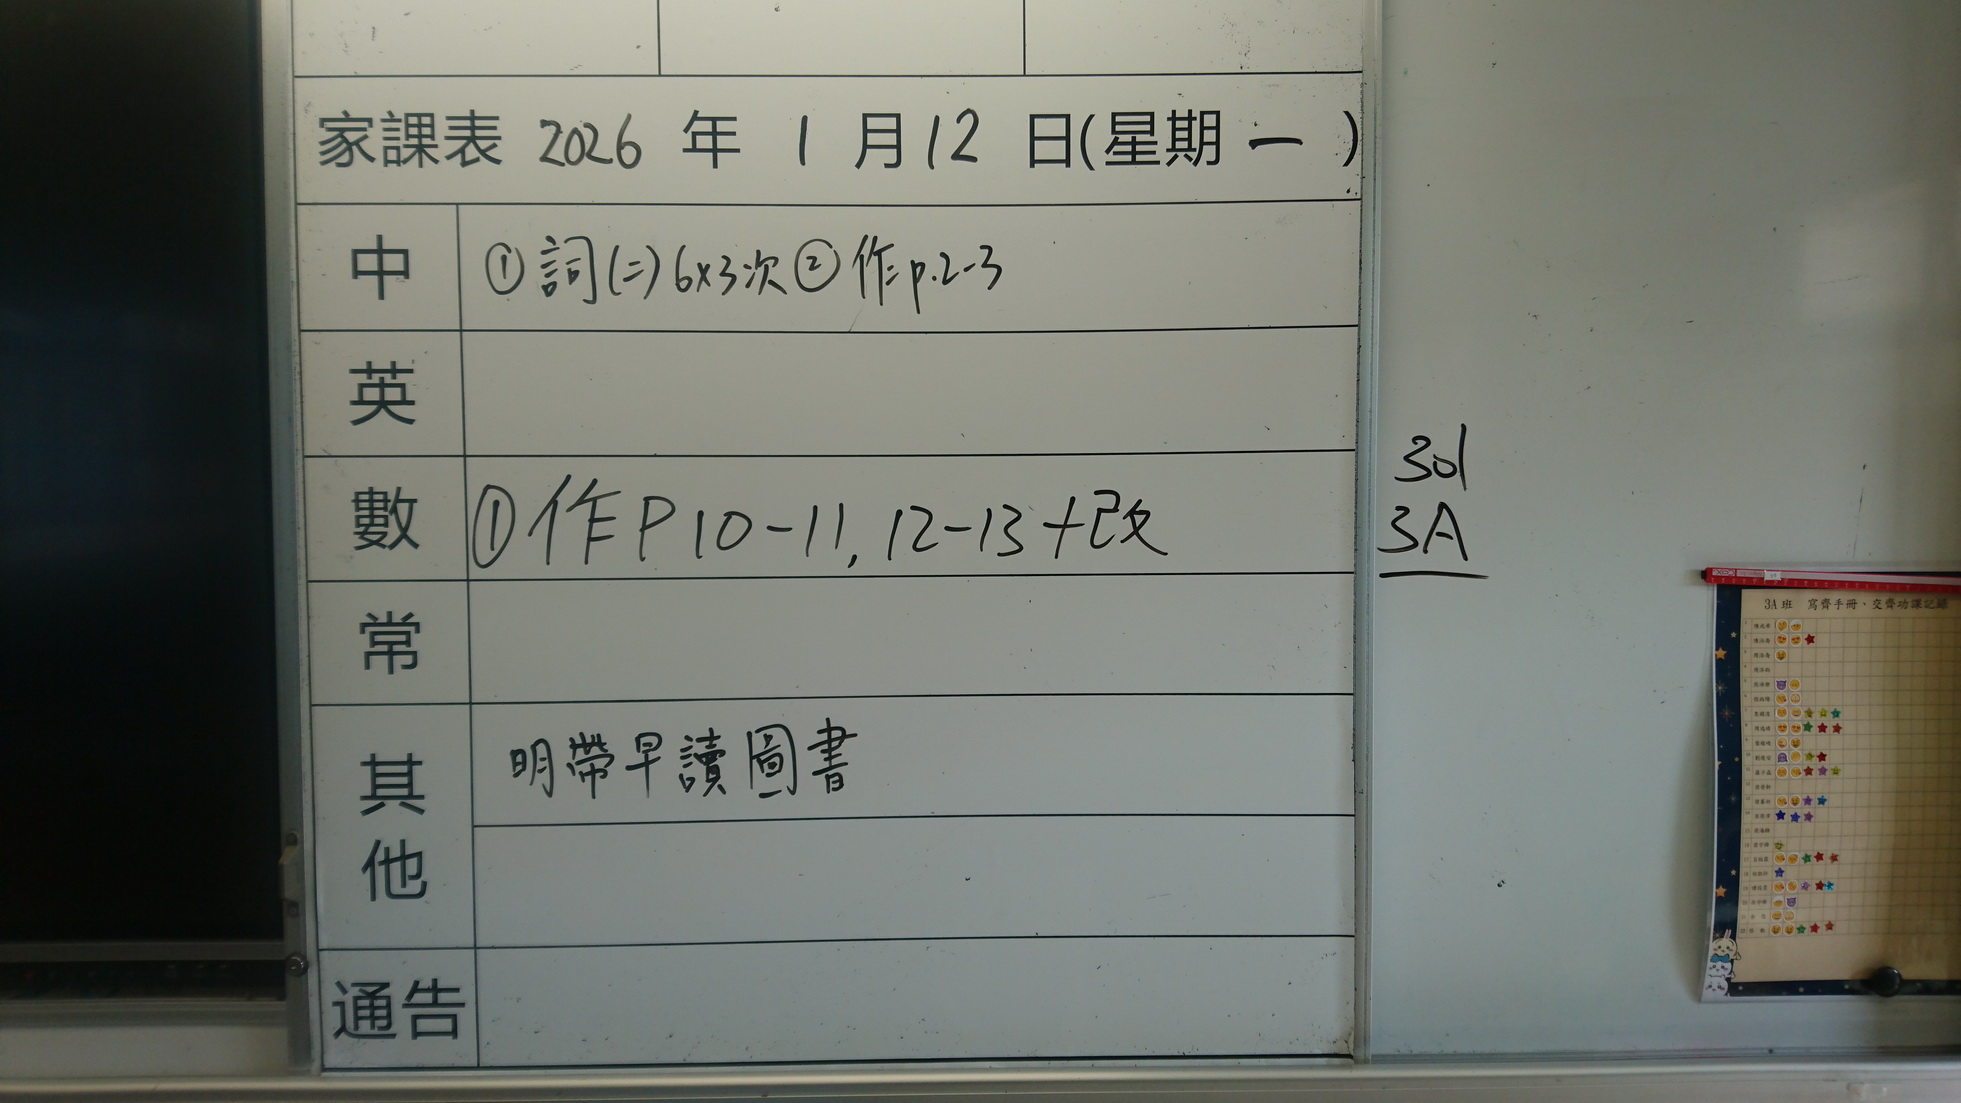 家課表 2026 年 1 月 12 日(星期 一 )
中 ①詞(二)6x3次 ②作p.2-3
英
數 ①作P10-11, 12-13+改
常
其他 明帶早讀圖書
通告
301
3A
3A班 寫齊手冊、交齊功課記錄